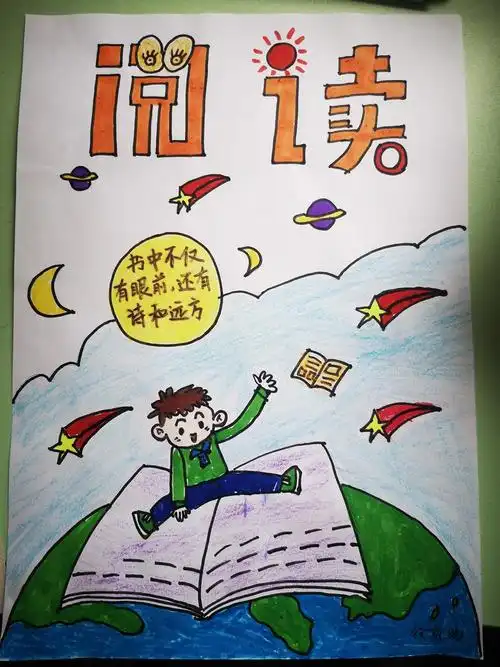 阅读
书中不仅
有眼前，还有
诗和远方